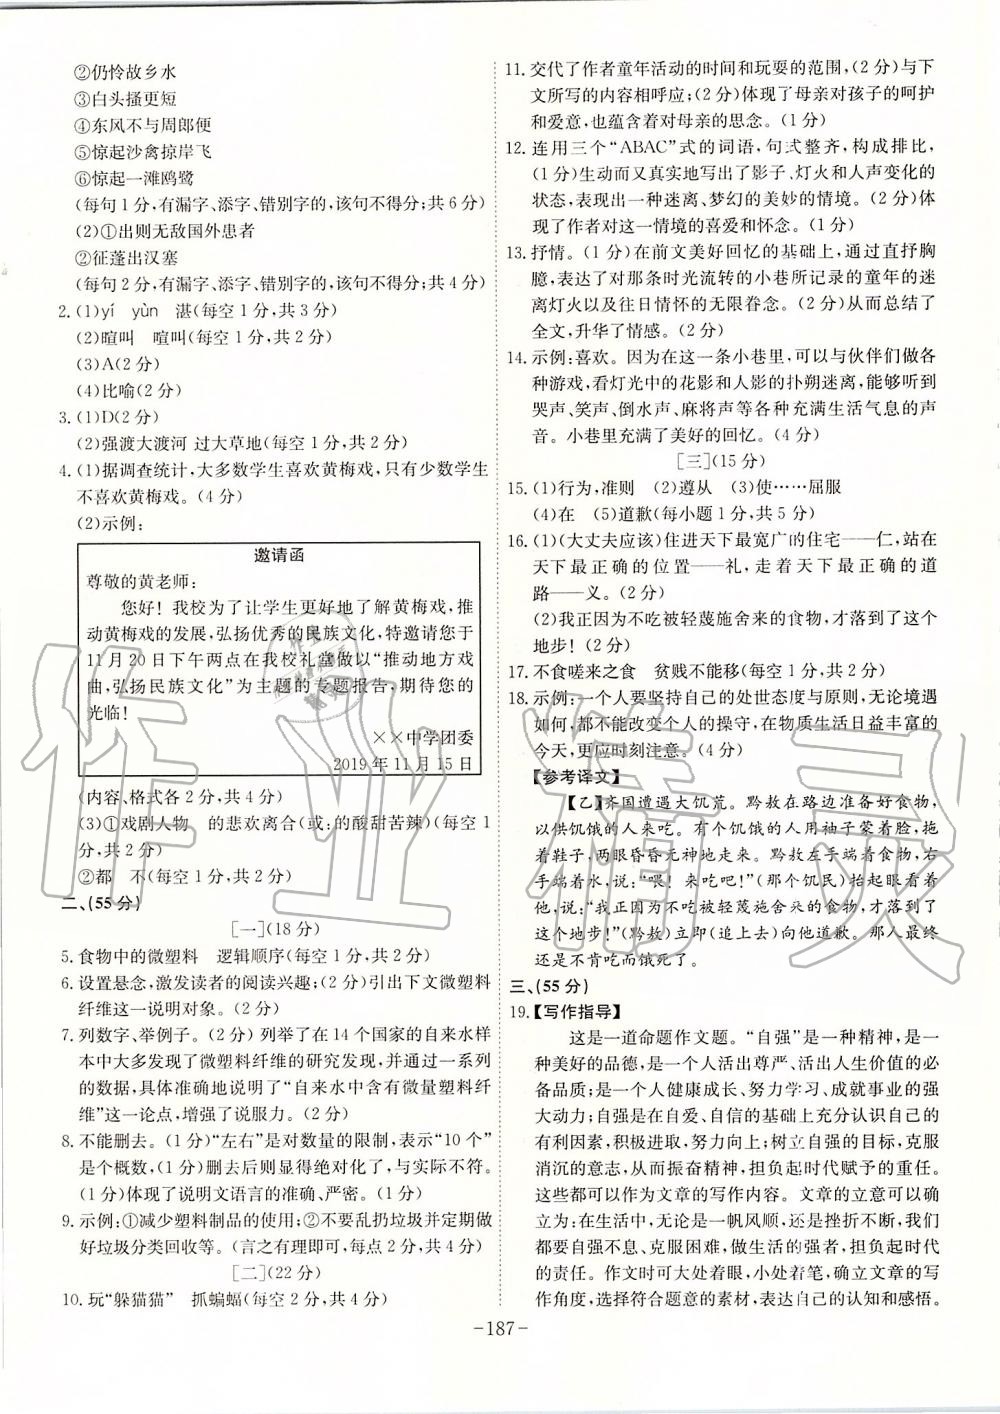 ②仍怜故乡水
③白头搔更短
④东风不与周郎便
⑤惊起沙禽掠岸飞
⑥惊起一滩鸥鹭
(每句1分,有漏字、添字、错别字的,该句不得分;共6分)
(2)①出则无敌国外患者
②征蓬出汉塞
(每句2分,有漏字、添字、错别字的,该句不得分;共4分)
2. (1)yí yùn 湛(每空1分,共3分)
(2)暄叫 喧叫(每空1分,共2分)
(3)A(2分)
(4)比喻(2分)
3. (1)D(2分)
(2)强渡大渡河 过大草地(每空1分,共2分)
4. (1)据调查统计,大多数学生喜欢黄梅戏,只有少数学生
不喜欢黄梅戏。(4分)
(2)示例:
邀请函
尊敬的黄老师:
您好!我校为了让学生更好地了解黄梅戏,推
动黄梅戏的发展,弘扬优秀的民族文化,特邀请您于
11月20日下午两点在我校礼堂做以“推动地方戏
曲,弘扬民族文化”为主题的专题报告,期待您的
光临!
××中学团委
2019年11月15日
(内容、格式各2分,共4分)
(3)①戏剧人物 的悲欢离合(或:的酸甜苦辣)(每空1
分,共2分)
②都 不(每空1分,共2分)
二、(55分)
[一](18分)
5. 食物中的微塑料 逻辑顺序(每空1分,共2分)
6. 设置悬念,激发读者的阅读兴趣;(2分)引出下文微塑料
纤维这一说明对象。(2分)
7. 列数字、举例子。(2分)列举了在14个国家的自来水样
本中大多发现了微塑料纤维的研究发现,并通过一系列
的数据,具体准确地说明了“自来水中含有微量塑料纤
维”这一论点,增强了说服力。(2分)
8. 不能删去。(1分)“左右”是对数量的限制,表示“10个”
是个概数,(1分)删去后则显得绝对化了,与实际不符。
(1分)体现了说明文语言的准确、严密。(1分)
9. 示例:①减少塑料制品的使用;②不要乱扔垃圾并定期做
好垃圾分类回收等。(言之有理即可,每点2分,共4分)
[二](22分)
10. 玩“躲猫猫” 抓蝙蝠(每空2分,共4分)
11. 交代了作者童年活动的时间和玩耍的范围,(2分)与下
文所写的内容相呼应;(2分)体现了母亲对孩子的呵护
和爱意,也蕴含着对母亲的思念。(1分)
12. 连用三个“ABAC”式的词语,句式整齐,构成排比,
(1分)生动而又真实地写出了影子、灯火和人声变化的
状态,表现出一种迷离、梦幻的美妙的情境。(2分)体
现了作者对这一情境的喜爱和怀念。(2分)
13. 抒情。(1分)在前文美好回忆的基础上,通过直抒胸
臆,表达了对那条时光流转的小巷所记录的童年的迷
离灯火以及往日情怀的无限眷念。(2分)从而总结了
全文,升华了情感。(2分)
14. 示例:喜欢。因为在这一条小巷里,可以与伙伴们做各
种游戏,看灯光中的花影和人影的扑朔迷离,能够听到
哭声、笑声、倒水声、麻将声等各种充满生活气息的声
音。小巷里充满了美好的回忆。(4分)
[三](15分)
15. (1)行为,准则 (2)遵从 (3)使……屈服
(4)在 (5)道歉(每小题1分,共5分)
16. (1)(大丈夫应该)住进天下最宽广的住宅——仁,站在
天下最正确的位置——礼,走着天下最正确的道
路——义。(2分)
(2)我正因为不吃被轻蔑施舍来的食物,才落到了这个
地步!(2分)
17. 不食嗟来之食 贫贱不能移(每空1分,共2分)
18. 示例:一个人要坚持自己的处世态度与原则,无论境遇
如何,都不能改变个人的操守,在物质生活日益丰富的
今天,更应时刻注意。(4分)
【参考译文】
【乙】齐国遭遇大饥荒。黔敖在路边准备好食物,
以供饥饿的人来吃。有个饥饿的人用袖子蒙着脸,拖
着鞋子,两眼昏昏无神地走来。黔敖左手端着食物,右
手端着水,说:“喂!来吃吧!”(那个饥民)抬起眼看着
他,说:“我正因为不吃被轻蔑施舍来的食物,才落到了
这个地步!”(黔敖)立即(追上去)向他道歉。那人最终
还是不肯吃而饿死了。
三、(55分)
19.【写作指导】
这是一道命题作文题。“自强”是一种精神,是一
种美好的品德,是一个人活出尊严、活出人生价值的必
备品质;是一个人健康成长、努力学习、成就事业的强
大动力;自强是在自爱、自信的基础上充分认识自己的
有利因素,积极进取,努力向上;树立自强的目标,克服
消沉的意志,从而振奋精神,担负起时代赋予的重任。
这些都可以作为文章的写作内容。文章的立意可以确
立为:在生活中,无论是一帆风顺,还是挫折不断,我们
都要自强不息、克服困难,做生活的强者,担负起时代
的责任。作文时可大处着眼,小处着笔,确立文章的写
作角度,选择符合题意的素材,表达自己的认知和感悟。
-187-
作业精灵